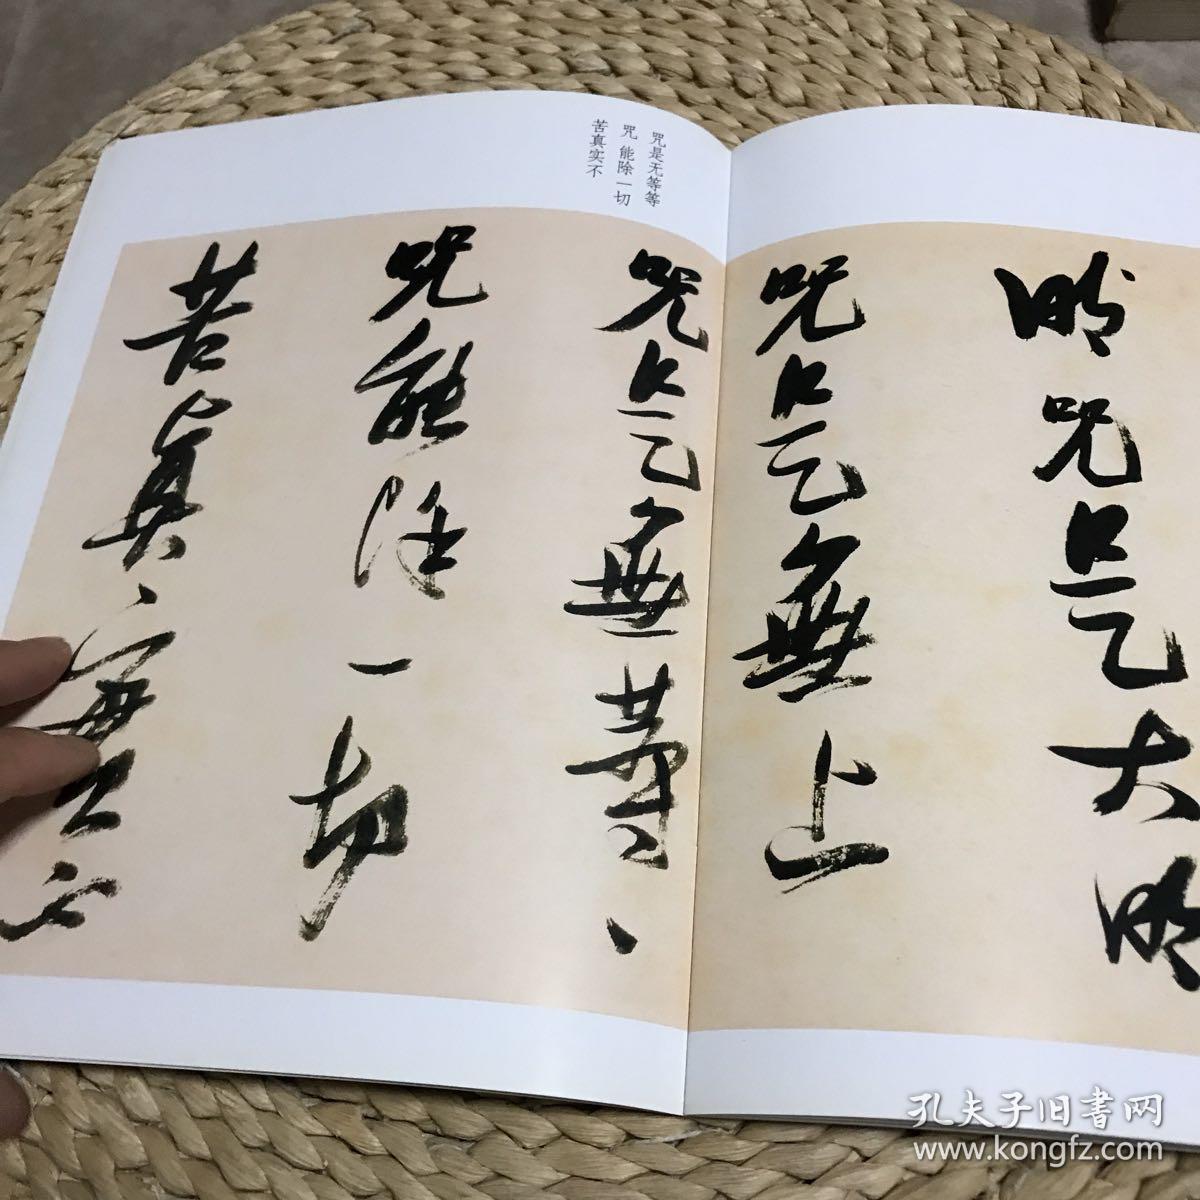 神咒是大明
咒是無上
咒是無等等
咒能除一切
苦真實不
咒是无等等
咒 能除一切
苦真实不
孔夫子旧书网
www.kongfz.com